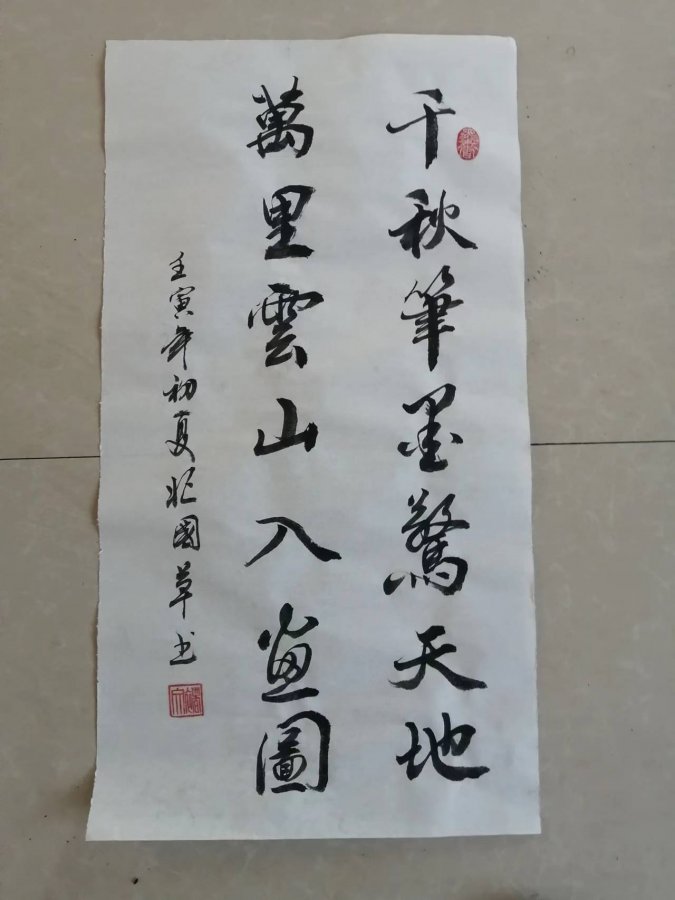 千秋筆墨驚天地
萬里雲山入畫圖
壬寅年初夏於國草书